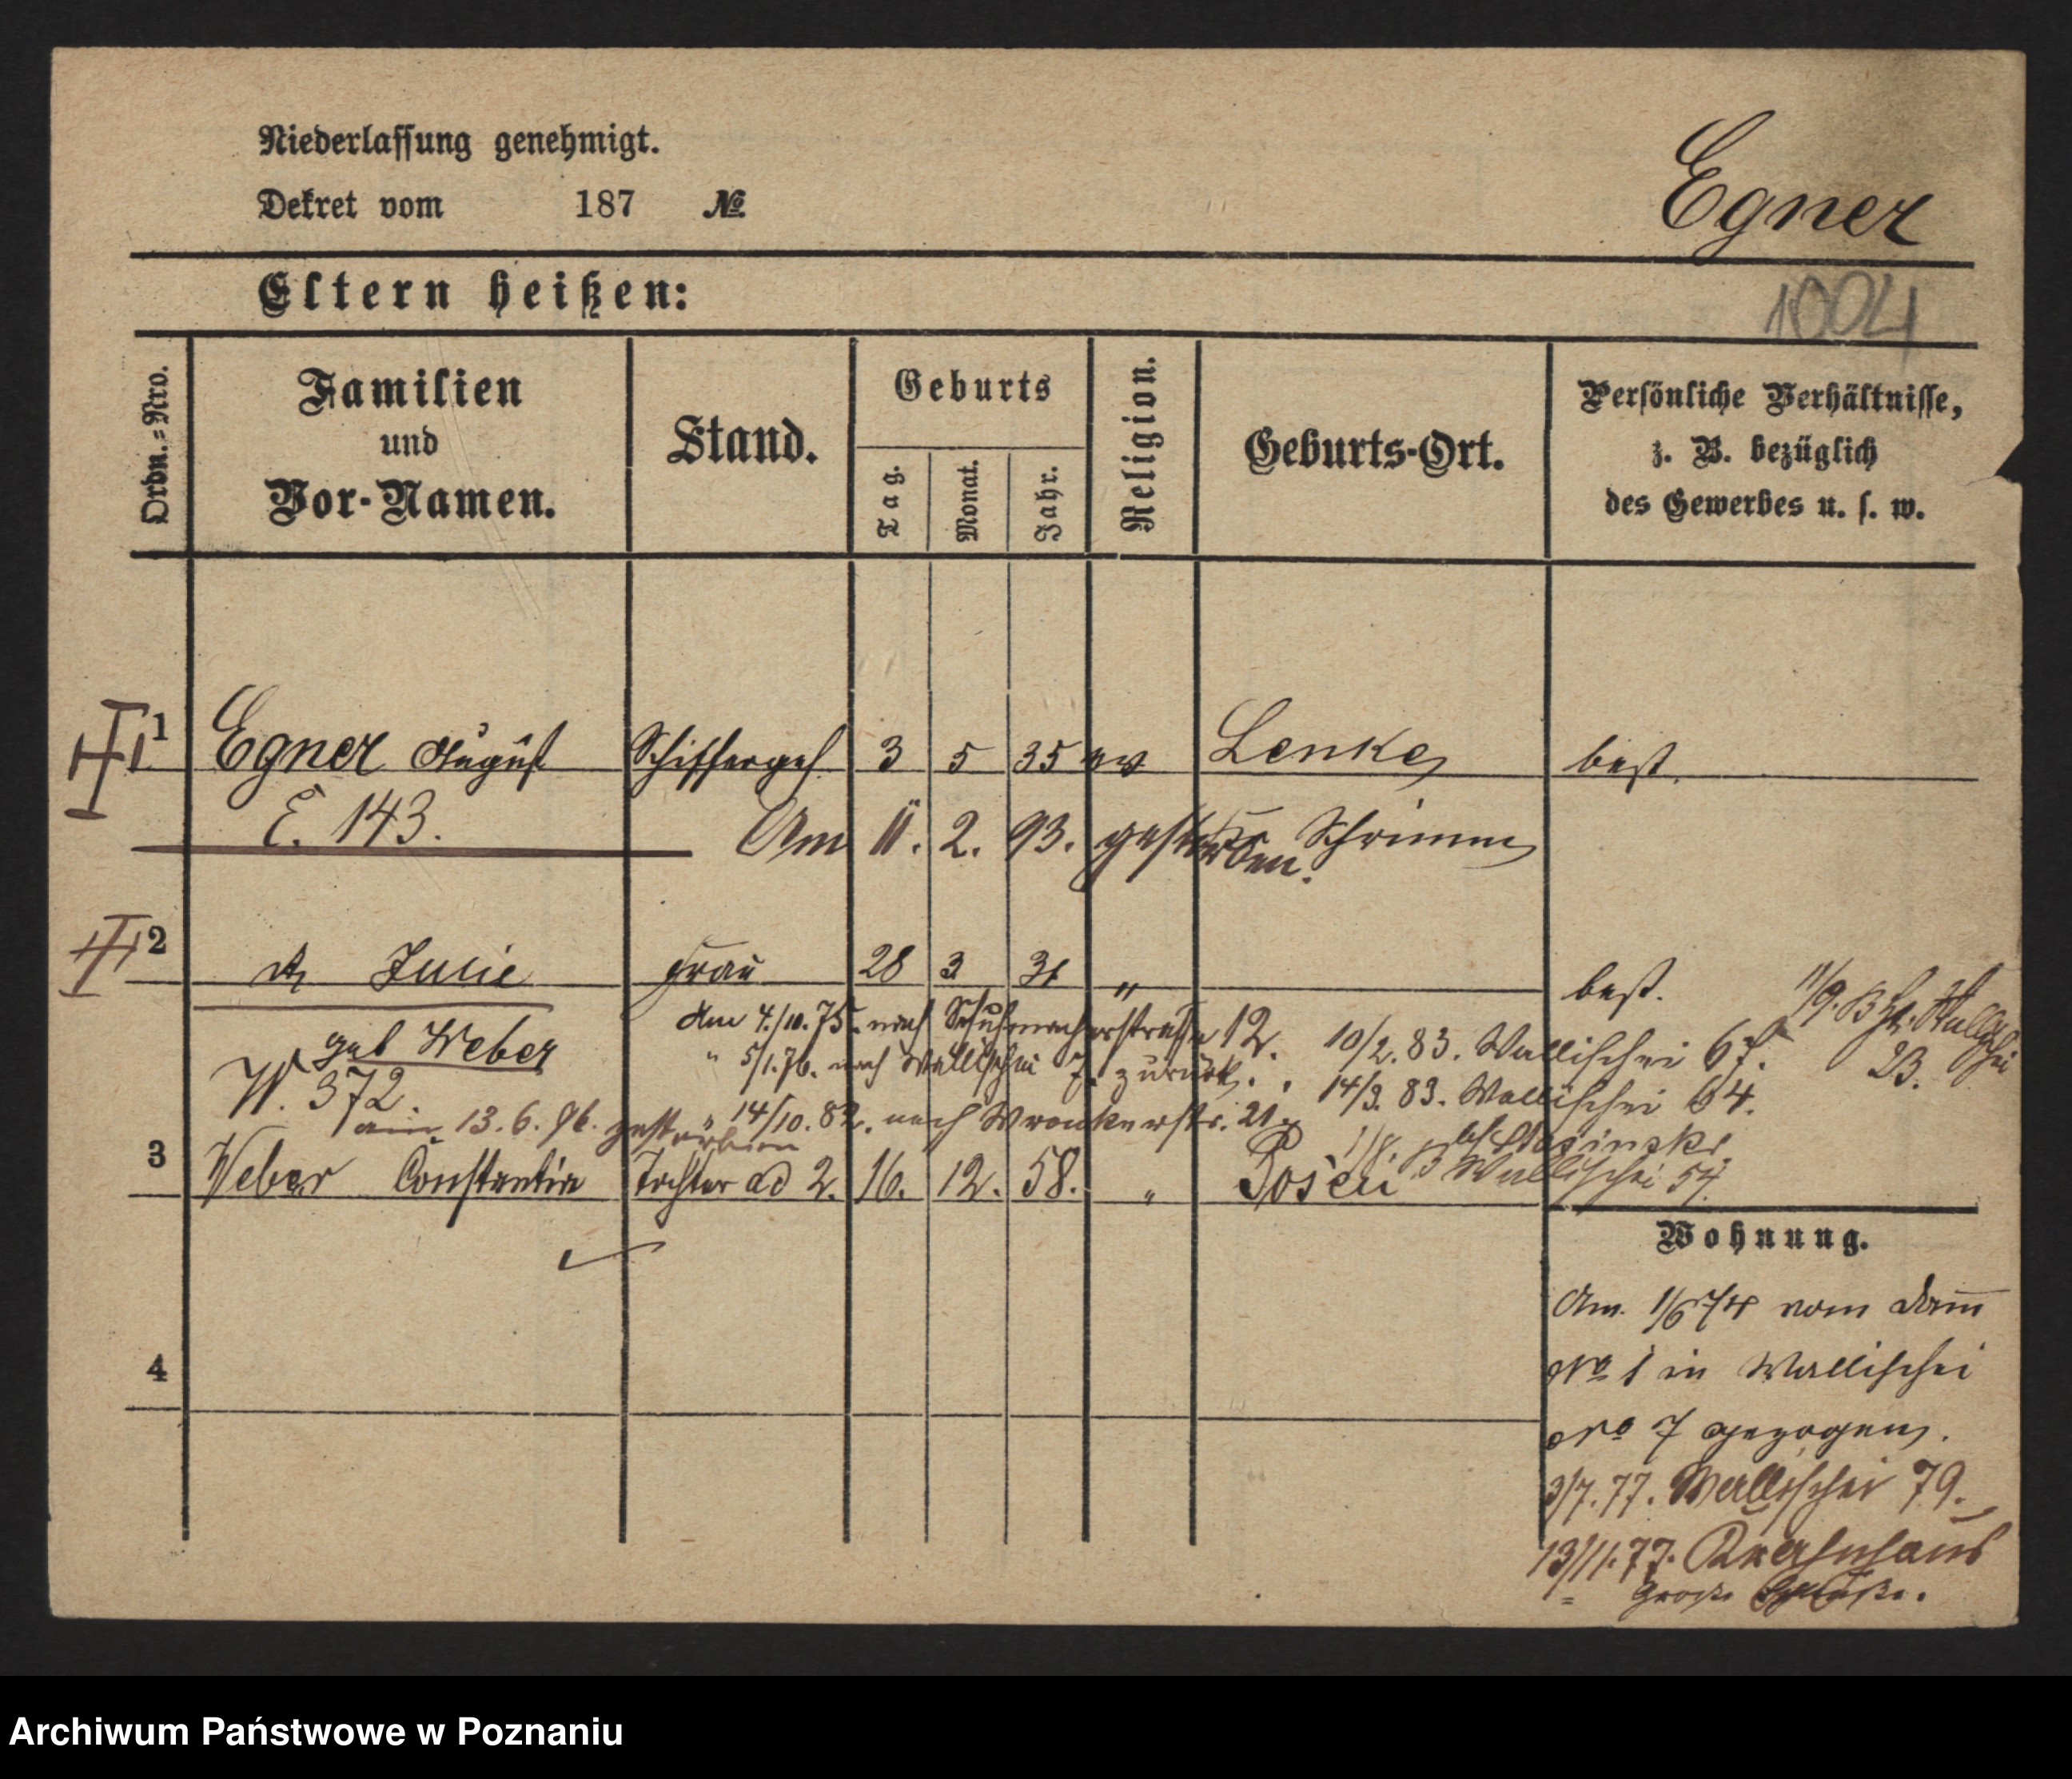 Niederlassung genehmigt.
Dekret vom 187 №
Egner
Eltern heißen:
1004
Ordn.=Nro.
Familien
und
Vor-Namen.
Stand.
Geburts
Tag.
Monat.
Jahr.
Religion.
Geburts-Ort.
Persönliche Verhältnisse,
z. B. bezüglich
des Gewerbes u. s. w.
1 Egner August Schifferges 3 5 35 ev Lenke best.
E. 143. Am 11. 2. 93. gestorben. Kr Schrimm
2 Julie Frau 28 3 31 " best.
geb Weber
W. 372.
Am 4./10. 75. nach Schuhmacherstraße 12.
" 5/1. 76. nach Wallischei 7. zurück.
10/2. 83. Wallischei 67.
14/3. 83. Wallischei 64.
" 14/10. 82. nach Wronkerstr. 21.
am 13. 6. 96. gestorben
23.
Wallischei 54.
3 Weber Constantia Tochter ad 2. 16. 12. 58. " Posen
Wohnung.
4
Am. 1/6 74 vom Damm
No 1 in Wallischei
No 7 gezogen.
3/7. 77. Wallischei 79.
13/11. 77. Krahnhaus
Große
Archiwum Państwowe w Poznaniu